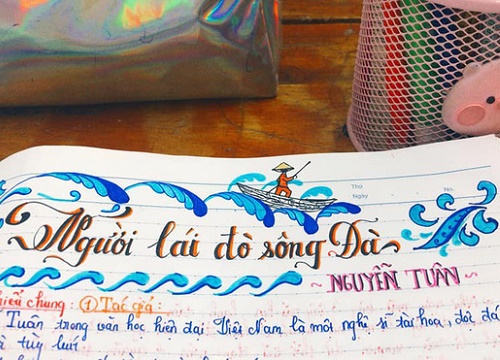 Thứ
Ngày
No.
Người lái đò sông Đà
~ NGUYỄN TUÂN ~
hiểu chung: ① Tác giả:
Tuân trong văn học hiện đại Việt Nam là một nghệ sĩ tài hoa, độc đá
à tuỳ bút